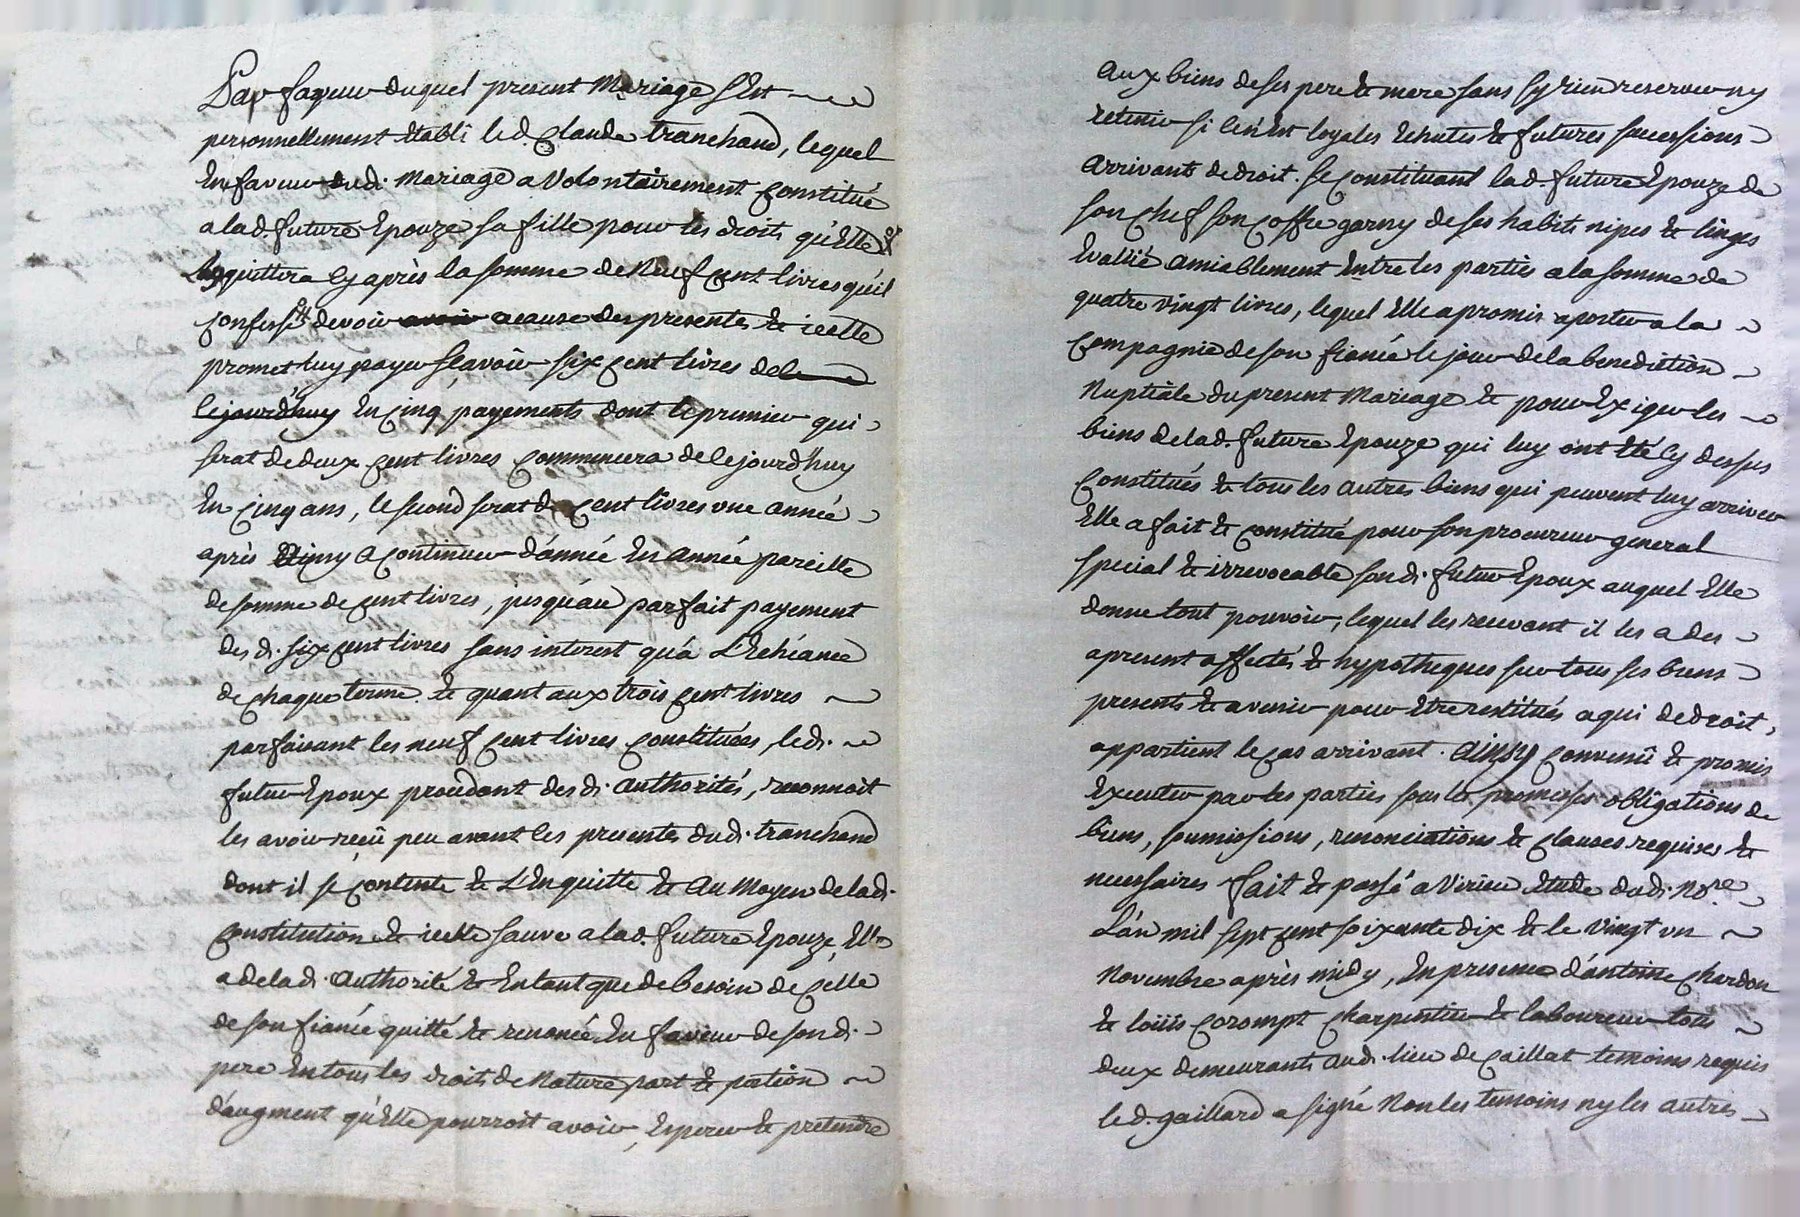 Par faveur duquel present Mariage s'Est
personnellement Etabli led. Claude tranchand, lequel
En faveur dudi. Mariage a Volontairement Constitué
a lad. future Epouze sa fille pour les droits qu'Elle
luy quittera cy après la somme de Neuf Cent livres qu'il
Confesse devoir a cause des presentes & icelle
promet luy payer sçavoir six cent livres de
lejourd'huy En Cinq payements dont le premier qui
serat de deux Cent livres Commencera de lejourd'huy
En Cinq ans, le second serat de Cent livres une année
après Ainsy a Continuer d'année En année pareille
de somme de Cent livres, jusqu'au parfait payement
des di. six cent livres sans interest qu'a L'Echéance
de chaque terme. & quant aux trois Cent livres
parfaisant les neuf Cent livres Constituées, led.
futur Epoux procedant des di. authorités, reconnoit
les avoir reçû peu avant les presentes dudi. tranchand
dont il se Contente & L'En quitte & Au Moyen de ladi.
Constitution & icelle sauve a lad. future Epouze, Elle
a de ladi. authorité & En tant que de besoin de Celle
de son fiancé quitté & renoncé En faveur de sondi.
pere En tous les droits de Nature part & portion
d'augment qu'Elle pourroit avoir, Esperer & pretendre
Aux biens de ses pere & mere sans s'y rien reserver ny
retenir si Ce n'Est loyales Echutes & futures successions
Arrivants de droit. se Constituant lad. future Epouze de
son Chef son Coffre garny de ses habits nipes & linges
Evallué amiablement Entre les parties a la somme de
quatre vingt livres, lequel Elle a promis aporter a la
Compagnie de son fiancé le jour de la benediction
Nuptiale du present Mariage & pour Exiger les
biens de lad. future Epouze qui luy ont Eté Cy dessus
Constitués & tous les autres biens qui peuvent luy arriver
Elle a fait & Constitué pour son procureur general
special & irrevocable sondi. futur Epoux auquel Elle
donne tout pouvoir, lequel les recevant il les a des
apresent affectés & hypotheques sur tous ses biens
presents & avenir pour Etre restitués a qui de droit,
appartient le Cas arrivant. Ainsy Convenû & promis
Executer par les parties sous les promesses obligations de
biens, soumissions, renonciations & Clauses requises &
necessaires. fait & passé a Virieu Etude dudi. No.re
L'an mil sept Cent soixante dix & le Vingt un
Novembre après midy, En presence d'Antoine Chardon
& loüis Corompt Charpentier & laboureur tous
deux demeurants audi. lieu de Caillat temoins requis
led. gaillard a signé Non les temoins ny les autres